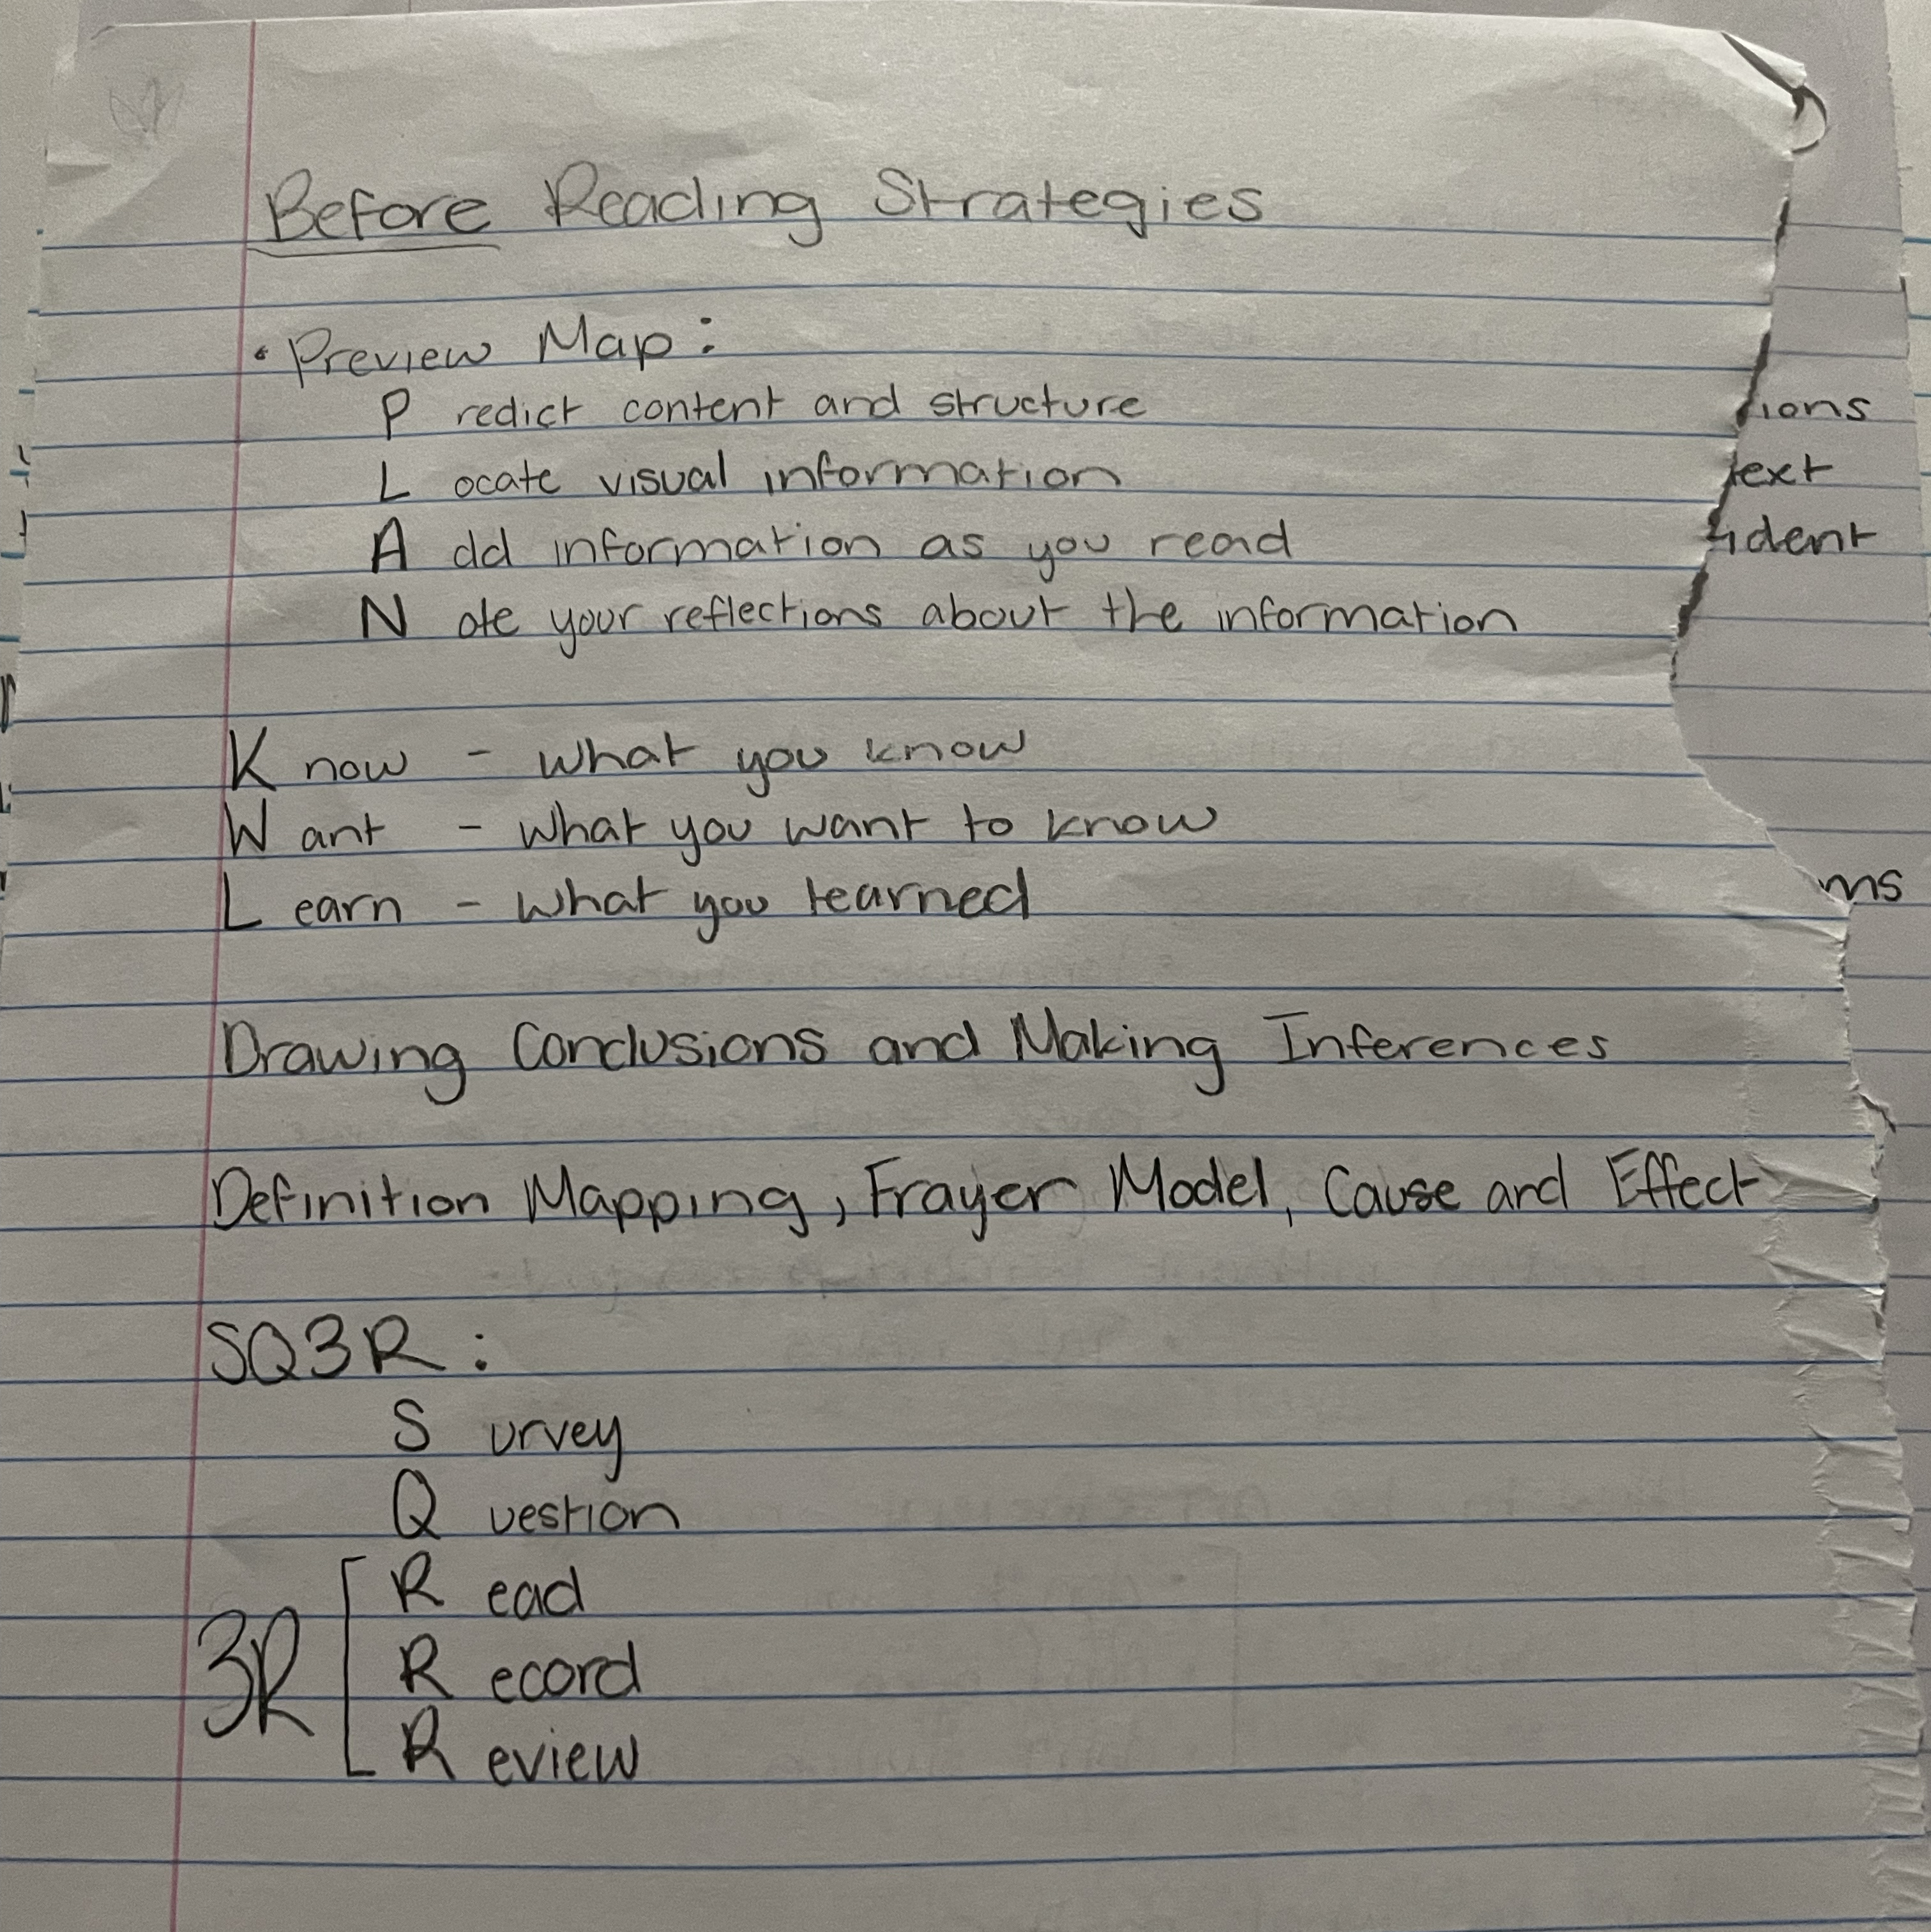 Before Reading Strategies
• Preview Map:
P redict content and structure
L ocate visual information
A dd information as you read
N ote your reflections about the information
K now - what you know
W ant - what you want to know
L earn - what you learned
Drawing Conclusions and Making Inferences
Definition Mapping, Frayer Model, Cause and Effect
SQ3R:
S urvey
Q uestion
3R [ R ead
R ecord
R eview
ions
text
ident
ms